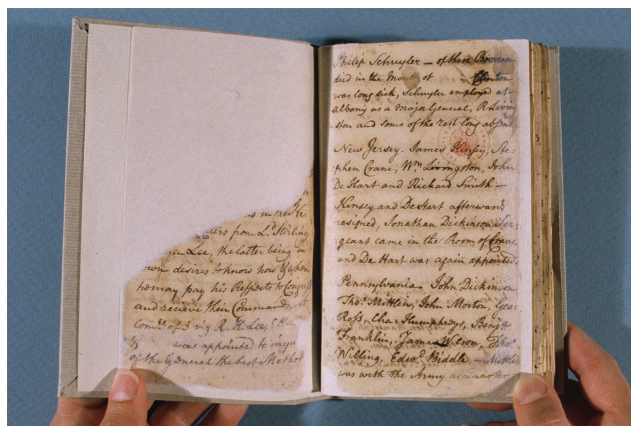 is in the He
ders from Ld. Stirling
Gen Lee, the latter being in
own desires to know how & when
he may pay his Respects to Congress
and recieve their Commands
Comee. of 3 viz R. H. Lee
was appointed to inqu
of the General the best Method
Philip Schuyler — of these Boerum
died in the Month of Clinton
was long sick, Schuyler employed at
albany as a Major General, R Livin
ston and some of the rest long absen
New Jersey. James Kinsey, Ste
phen Crane, Wm. Livingston, John
De Hart and Richard Smith —
Kinsey and De Hart afterwards
resigned, Jonathan Dickinson Ser
geant came in the Room of Crane
and De Hart was again appointed.
Pennsylvania. John Dickinson
Thos. Mifflin, John Morton, Geo
Ross, Cha. Humphreys, Benja
Franklin, James Wilson, Thos.
Willing, Edwd. Biddle — Mifflin
was with the Army as